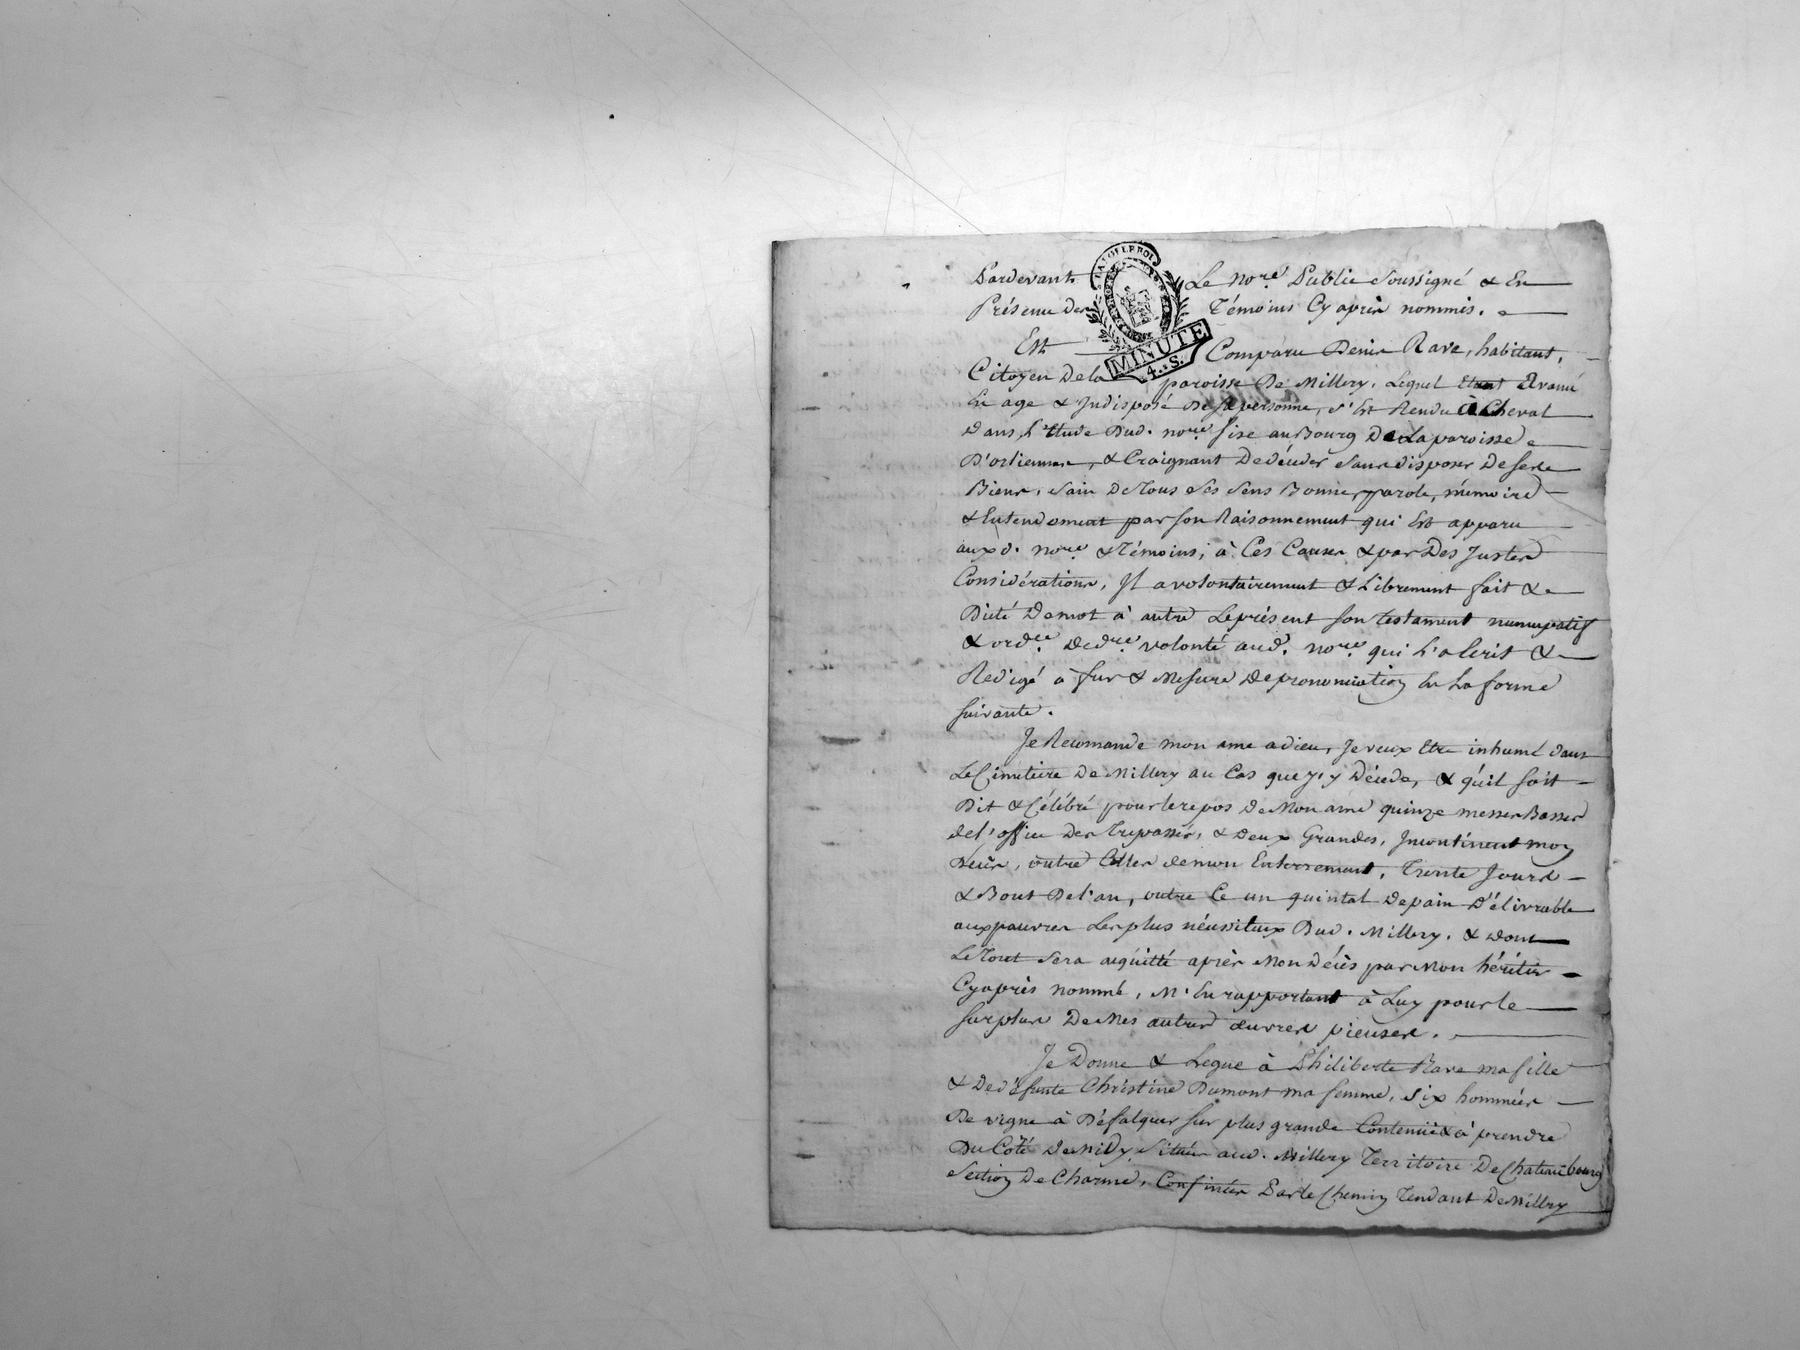 Pardevant Le no.re Public soussigné & En
Présence des Témoins Cy après nommés.
LA LOI LE ROI
MINUTE
4. S.
Est Comparu Denis Rave, habitant,
Citoyen De la paroisse De Millery, Lequel Etant Avancé
En age & Indisposé De sa personne, s'Est Rendu à Cheval
Dans L'Etude Dud. no.re sise au Bourg De La paroisse
D'orlienas, & Craignant De décéder sans disposer De ses
Biens, sain De Tous Ses Sens Bonne parole, mémoire
& Entendement par son Raisonnement qui Est apparu
auxd. no.re & Témoins; à Ces Causes & par Des Justes
Considérations, Il a volontairement & Librement fait &
Dicté De mot à autre Le présent son testament nuncupatif
& ord.ce De d.re volonté aud. no.re qui L'a Ecrit &
Rédigé à fur & Mesure De prononciation En La forme
suivante.
Je Recomande mon ame à dieu, Je veux Etre inhumé dans
Le Cimetière De Millery au Cas que j'y Décède, & qu'il soit
Dit & Célébré pour le repos De Mon ame quinze messes Basses
de l'office Des Trépassés, & Deux Grandes, Incontinent mon
Décès, outre Celles de mon Enterrement, Trente Jours
& Bout De l'an, outre Ce un quintal De pain Délivrable
aux pauvres Les plus nécessiteux Dud. Millery. & dont
Le Tout sera acquitté après Mon Décès par Mon héritier
Cy après nommé, M'En rapportant à Luy pour le
surplus De Mes autres œuvres pieuses.
Je Donne & Legue à Philiberte Rave ma fille
& De défunte Christine Dumont ma femme, six hommées
De vigne à Défalquer sur plus grande Contenue & à prendre
Du Coté De Midy Située aud. Millery Territoire De Chateaubourg
Section De Charme, Confinées Par le Chemin Tendant De Millery